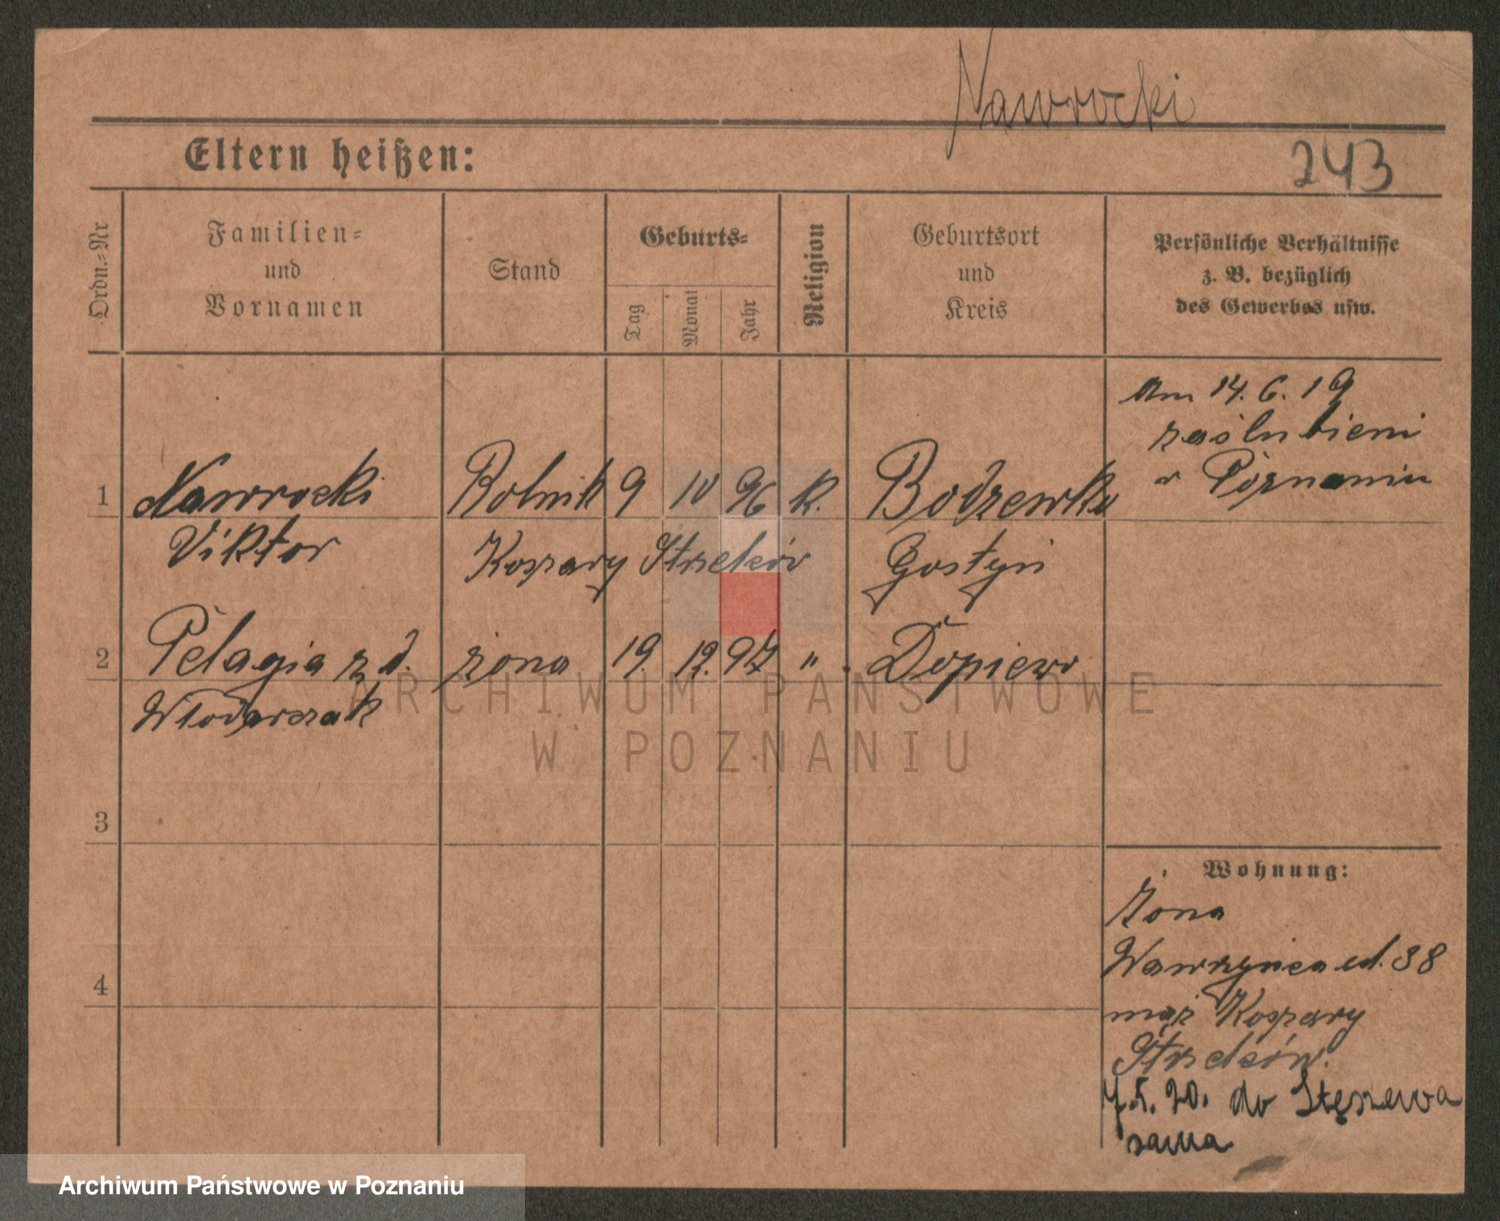 Nawrocki
Eltern heißen:
243
Ordn.=Nr
Familien=
und
Vornamen
Stand
Geburts=
Tag
Monat
Jahr
Religion
Geburtsort
und
Kreis
Persönliche Verhältnisse
z. B. bezüglich
des Gewerbes usw.
am 14. 6. 19
zaślubieni
w Poznaniu
1 Nawrocki Rolnik 9 10 96 k. Bodzewko
Viktor Koszary Strzelców Gostyń
2 Pelagia z d. żona 19. 12. 97 " Dopiewo
Włodarczak
3
4
Wohnung:
żona
Wawrzyńca 38
mąż Koszary
Strzelców.
7.5. 20. do Stęszewa
sama
ARCHIWUM PAŃSTWOWE
W POZNANIU
Archiwum Państwowe w Poznaniu